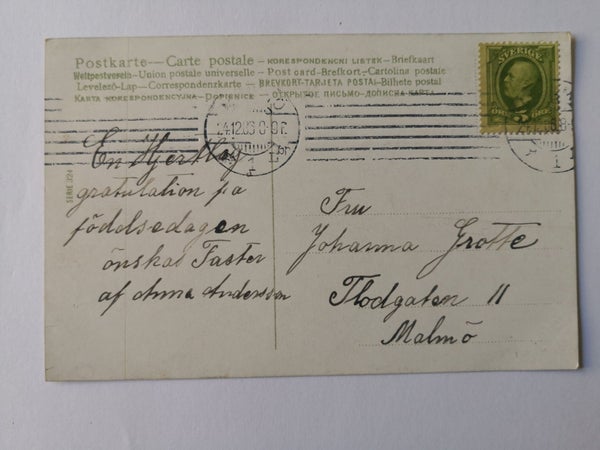 Postkarte — Carte postale — KORESPONDENCNI LISTEK — Briefkaart
Weltpostverein — Union postale universelle — Post card — Brefkort — Cartolina postale
Levelező-Lap — Correspondenzkarte — BREVKORT — TARJETA POSTAL — Bilhete postal
KARTA KORESPONDENCYJNA — DOPISNICE — ОТКРЫТОЕ ПИСЬМО — ДОПИСНА КАРТА
SVERIGE
ÖRE 5 ÖRE
24.12.05
SERIE 324
En Hjertlig
gratulation på
födelsedagen
önskas Faster
af Anna Andersson
Fru
Johanna Grotte
Flodgatan 11
Malmö